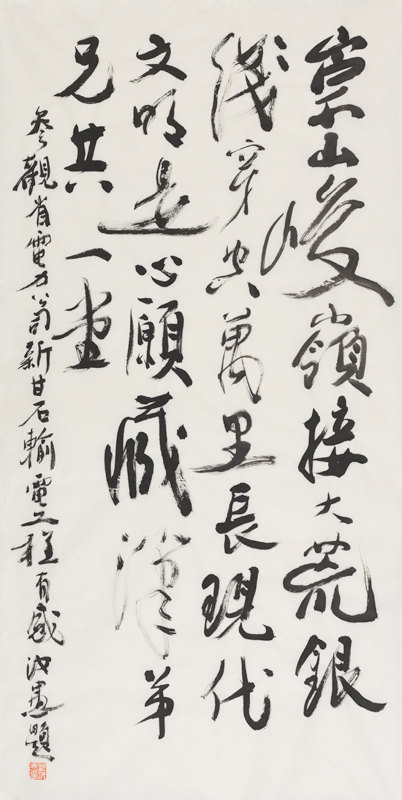 崇山峻嶺接大荒銀
綫穿空萬里長現代
文明是心願藏漢弟
兄共一堂
參觀省電力公司新甘石輸電工程有感 題